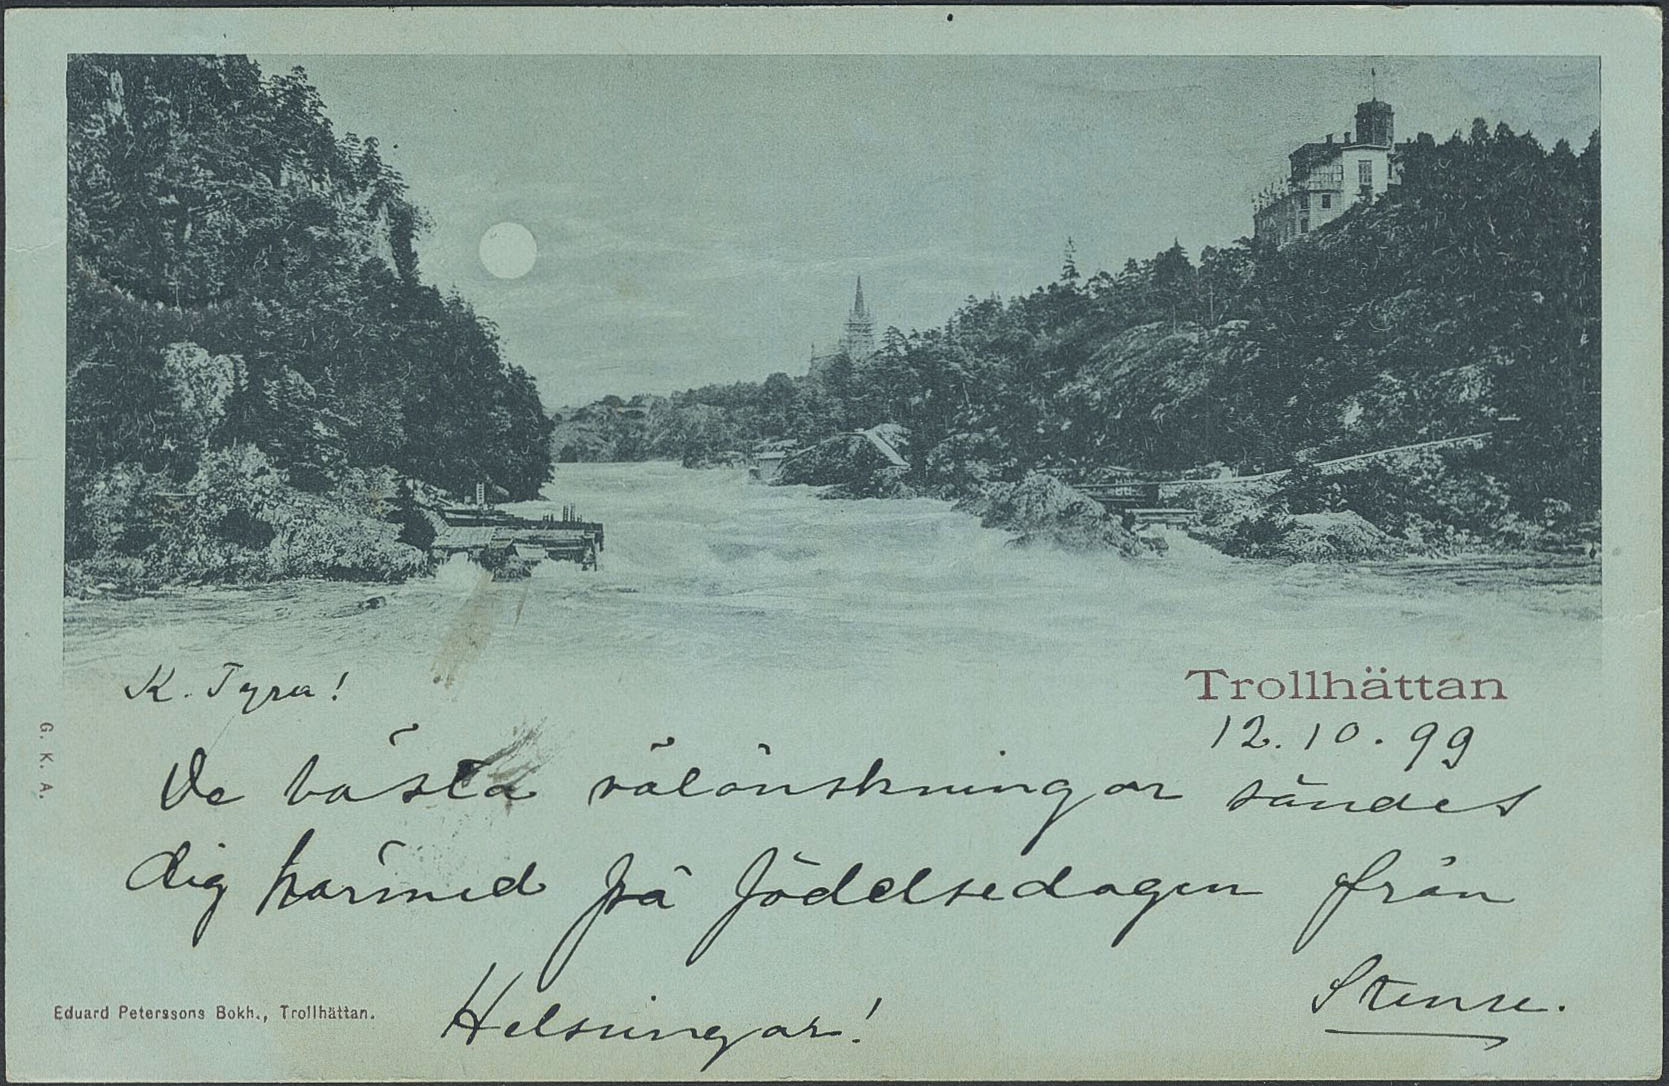 K. Tyra!
Trollhättan
12.10.99
De bästa välönskningar sändes
dig härmed på födelsedagen från
Helsningar!
G. K. A.
Eduard Peterssons Bokh., Trollhättan.